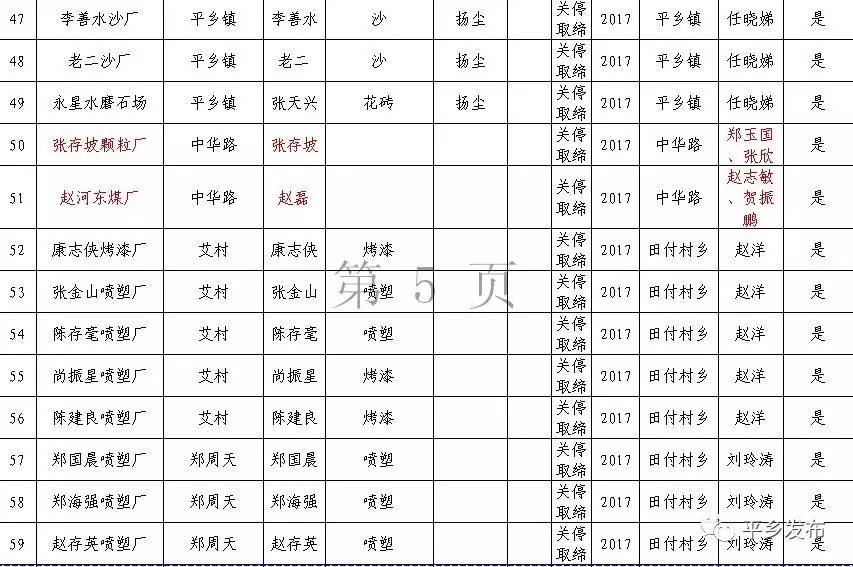 47 李善水沙厂 平乡镇 李善水 沙 扬尘 关停取缔 2017 平乡镇 任晓娣 是
48 老二沙厂 平乡镇 老二 沙 扬尘 关停取缔 2017 平乡镇 任晓娣 是
49 永星水磨石场 平乡镇 张天兴 花砖 扬尘 关停取缔 2017 平乡镇 任晓娣 是
50 张存坡颗粒厂 中华路 张存坡 关停取缔 2017 中华路 郑玉国、张欣 是
51 赵河东煤厂 中华路 赵磊 关停取缔 2017 中华路 赵志敏、贺振鹏 是
52 康志侠烤漆厂 艾村 康志侠 烤漆 关停取缔 2017 田付村乡 赵洋 是
53 张金山喷塑厂 艾村 张金山 喷塑 关停取缔 2017 田付村乡 赵洋 是
54 陈存毫喷塑厂 艾村 陈存毫 喷塑 关停取缔 2017 田付村乡 赵洋 是
55 尚振星喷塑厂 艾村 尚振星 烤漆 关停取缔 2017 田付村乡 赵洋 是
56 陈建良喷塑厂 艾村 陈建良 烤漆 关停取缔 2017 田付村乡 赵洋 是
57 郑国晨喷塑厂 郑周天 郑国晨 喷塑 关停取缔 2017 田付村乡 刘玲涛 是
58 郑海强喷塑厂 郑周天 郑海强 喷塑 关停取缔 2017 田付村乡 刘玲涛 是
59 赵存英喷塑厂 郑周天 赵存英 喷塑 关停取缔 2017 田付村乡 刘玲涛 是
第 5 页
平乡发布